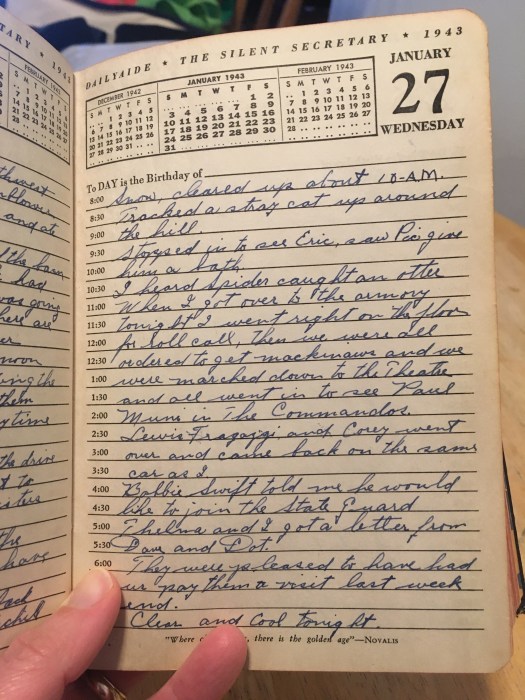 TARY * 194
FEBRUARY 194
thwest
blower
and at
the barn
had
was going
here are
er
noon
ing the
them
y time
the drive
t to
the
have
back
DAILYAIDE * THE SILENT SECRETARY * 1943
DECEMBER 1942
S M T W T F S
. . 1 2 3 4 5
6 7 8 9 10 11 12
13 14 15 16 17 18 19
20 21 22 23 24 25 26
27 28 29 30 31 . .
JANUARY 1943
S M T W T F S
. . . . . 1 2
3 4 5 6 7 8 9
10 11 12 13 14 15 16
17 18 19 20 21 22 23
24 25 26 27 28 29 30
31 . . . . . .
FEBRUARY 1943
S M T W T F S
. 1 2 3 4 5 6
7 8 9 10 11 12 13
14 15 16 17 18 19 20
21 22 23 24 25 26 27
28 . . . . . .
JANUARY
27
WEDNESDAY
To DAY is the Birthday of
8:00 Snow, cleared up about 10-A.M.
8:30 Tracked a stray cat up around
9:00 the hill.
9:30 Stopped in to see Eric, saw Pic give
10:00 him a bath
10:30 I heard Spider caught an otter
11:00 When I got over to the armory
11:30 tonight I went right on the floor
12:00 for roll call, then we were all
12:30 ordered to get mackinaws and we
1:00 were marched down to the Theatre
1:30 and all went in to see Paul
2:00 Muni in The Commandos.
2:30 Lewis Fragozzi, and Corey went
3:00 over and came back on the same
3:30 car as I
4:00 Bobbie Swift told me he would
4:30 like to join the State Guard
5:00 Thelma and I got a letter from
5:30 Dave and Dot.
6:00 They were pleased to have had
us pay them a visit last week
end.
Clear and Cool tonight.
"Where , there is the golden age"—NOVALIS